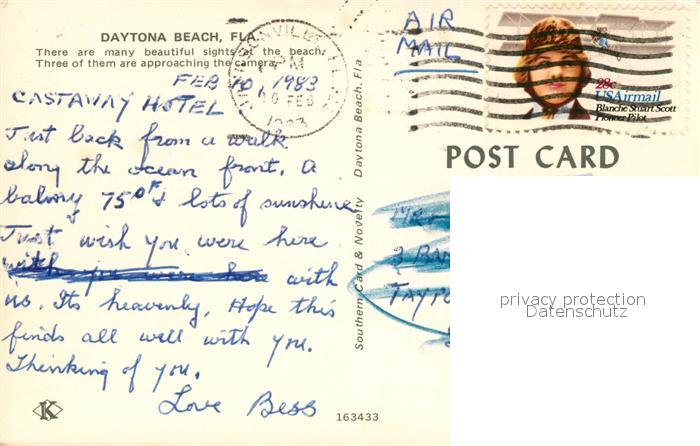 DAYTONA BEACH, FLA.
There are many beautiful sights at the beach.
Three of them are approaching the camera.
FEB 10, 1983
CASTAWAY HOTEL
Just back from a walk
along the ocean front. A
balmy 75° & lots of sunshine
Just wish you were here
with
us. Its heavenly. Hope this
finds all well with you.
Thinking of you.
Love Bess
K
163433
Southern Card & Novelty Daytona Beach, Fla
AIR
MAIL
PM
10 FEB
1983
28c
USAirmail
Blanche Stuart Scott
Pioneer Pilot
POST CARD
3
privacy protection
Datenschutz